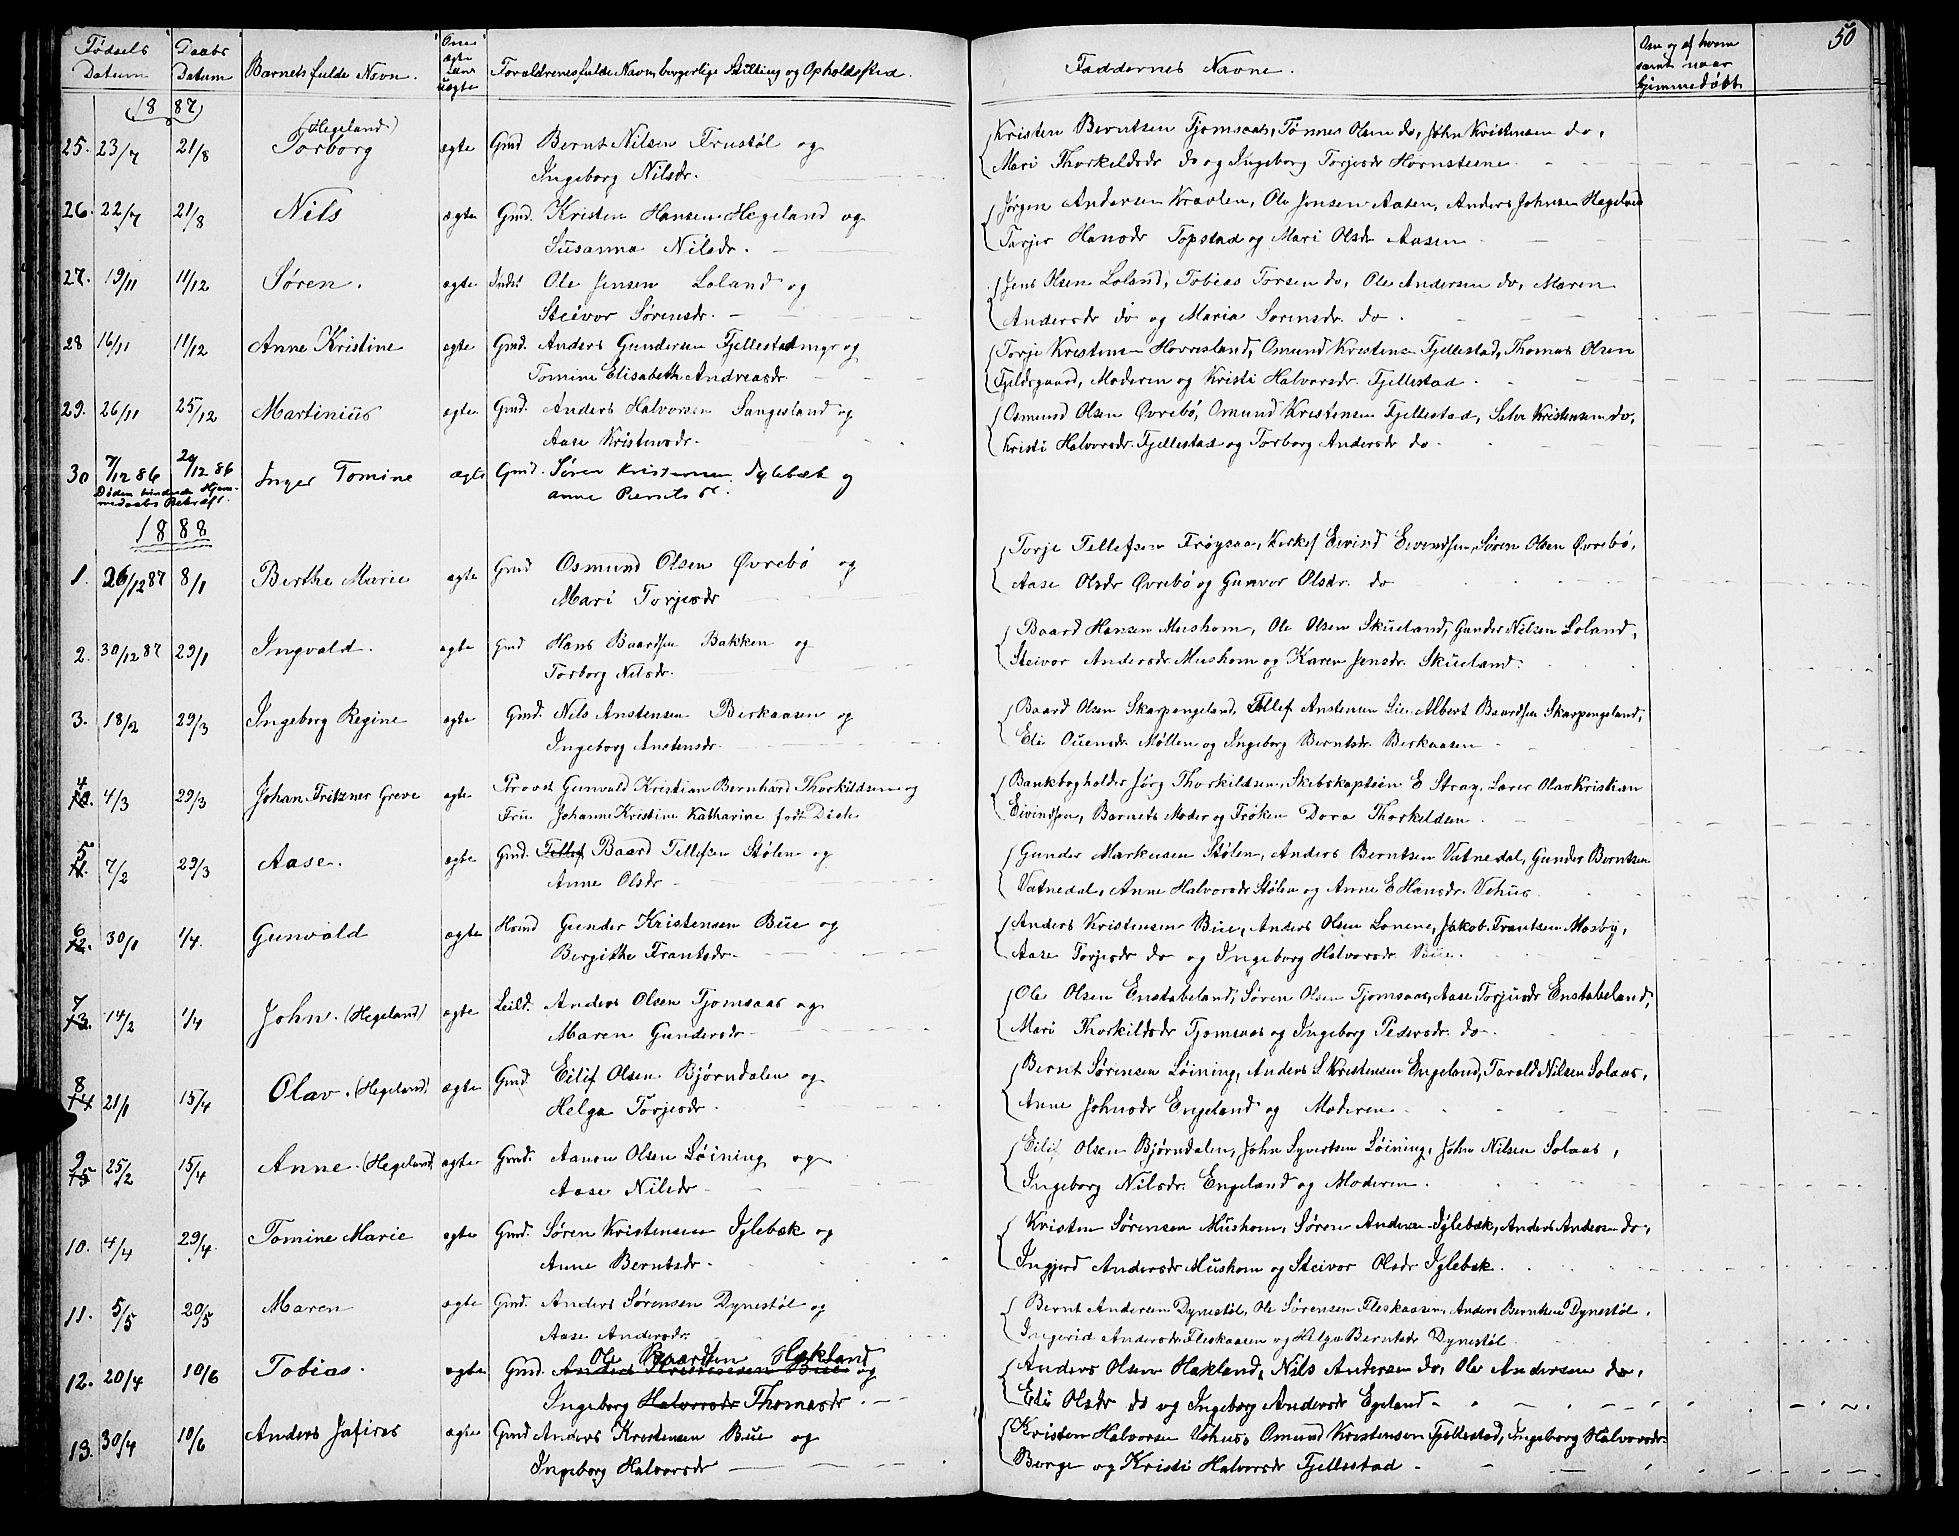 50
Fødsels Datum
Daabs Datum
Barnets fulde Navn.
Om ægte eller uægte
Forældrenes fulde Navn, borgerlige Stilling og Opholdssted.
Faddernes Navne.
Om og af hvem samt naar hjemmedøbt
1887
25. 23/7 21/8 (Hegeland) Torborg ægte Gmd Bernt Nilsen Frustøl og
Ingeborg Nilsdr.
Kristen Berntsen Tjomsaas, Tønnes Olsen do, John Kristensen do,
Mari Thorkildsdr do og Ingeborg Torjesdr Hornsteene
26. 22/7 21/8 Nils ægte Gmd. Kristen Hansen Hegeland og
Susanna Nilsdr.
Jørgen Andersen Kravlen, Ole Jensen Aasen, Anders Johnsen Hegeland
Tarjer Hansdr Topstad og Mari Olsdr Aasen
27. 19/11 11/12 Søren. ægte Inds. Ole Jensen Loland og
Steivor Sørensdr.
Jens Olsen Loland, Tobias Torsen do, Ole Andersen do, Maren
Andersdr do og Maria Sørensdr. do.
28 16/11 11/12 Anne Kristine ægte Gmd. Anders Gundersen Fjellestad mgr og
Tomine Elisabeth Andreasdr.
Torje Kristensen Hovresland, Omund Kristensen Fjellestad, Thomas Olsen
Fjeldsgaard, Moderen og Kristi Halvorsdr. Fjellestad.
29. 26/11 25/12 Martinius ægte Gmd. Anders Halvorsen Sangesland og
Aase Kristensdr.
Osmund Olsen Øvrebø, Omund Kristensen Fjellestad, Salve Kristensen do,
Kristi Halvorsdr. Fjellestad og Torborg Andersdr do.
30 7/12 86 29/12 86 Inger Tomine ægte Gmd. Søren Kristensen Iglebæk og
Anne Berntsdr.
1888
1. 26/12 87 8/1 Berthe Marie ægte Gmd Osmund Olsen Øvrebø og
Mari Torjesdr
Torje Tellefsen Frøysaa, Kirkes. Eivind Eivindsen, Søren Olsen Øvrebø,
Aase Olsdr Øvrebø og Gunvor Olsdr. do
2. 30/12 87 29/1 Ingvald. ægte Gmd Hans Baardsen Bakken og
Torborg Nilsdr.
Baard Hansen Mushom, Ole Olsen Skueland, Gunder Nilsen Loland,
Steivor Andersdr Mushom og Karen Jensdr. Skueland.
3. 18/2 29/3 Ingeborg Regine ægte Gmd. Nils Anstensen Berkaasen og
Ingeborg Anstensdr.
Baard Olsen Skarpengeland, Tellef Anstensen Lie, Albert Baardsen Skarpengeland,
Eli Ouensdr. Møllen og Ingeborg Berntsdr. Berkaasen
4 4/3 29/3 Johan Fritzner Greve ægte Provst Gunvald Kristian Bernhard Thorkildsen og
Fru Johanne Kristine Katharine født Dick
Bankbogholder Jørg Thorkildsen, Skibskaptein E Stray, Lærer Olav Kristian
Eivindsen, Barnets Moder og Frøken Dora Thorkildsen.
5 7/2 29/3 Aase. ægte Gmd. Tellef Baard Tellefsen Stølen og
Anne Olsdr
Gunder Markusen Stølen, Anders Berntsen Vatnedal, Gunder Berntsen
Vatnedal, Anne Halvorsdr Stølen og Anne E Hansdr. Vehus.
6 30/1 1/4. Gunvald ægte Hsmd Gunder Kristensen Bue og
Bergithe Frantsdr.
Anders Kristensen Bue, Anders Olsen Lonene, Jakob Frantsen Mosby,
Aase Torjesdr do og Ingeborg Halvorsdr. Bue.
7 14/2 1/4 John. (Hegeland) ægte Leild. Anders Olsen Tjomsaas og
Maren Gundersdr
Ole Olsen Enstabeland, Søren Olsen Tjomsaas, Aase Torjusdr Enstabeland,
Mari Thorkildsdr Tjomsaas og Ingeborg Pedersdr. do.
8 21/1 15/4 Olav. (Hegeland) ægte Gmd. Eilif Olsen Bjørndalen og
Helga Torjesdr.
Bernt Sørensen Løining, Anders S Kristensen Engeland, Tarald Nilsen Solaas,
Anne Johnsdr Engeland og Moderen
9 25/2 15/4 Anne. (Hegeland) ægte Gmd. Aanon Olsen Løining og
Aase Nilsdr
Eilif Olsen Bjørndalen, John Syvertsen Løining, John Nilsen Solaas,
Ingeborg Nilsdr. Engeland og Moderen.
10. 4/4 29/4. Tomine Marie ægte Gmd. Søren Kristensen Iglebæk og
Anne Berntsdr.
Kristen Sørensen Mushom, Søren Andersen Iglebæk, Anders Andersen do,
Ingjerd Andersdr Mushom og Steivor Olsdr Iglebæk.
11. 5/5 20/5 Maren ægte Gmd. Anders Sørensen Dynestøl og
Aase Andersdr.
Bernt Andersen Dynestøl, Ole Sørensen Fleskaasen, Anders Berntsen Dynestøl.
Ingerid Andersdr Fleskaasen og Helga Berntsdr Dynestøl
12. 20/4 10/6 Tobias. ægte Gmd. Ole Baardsen Hakland
Anders Kristensen Bue og
Ingeborg Halvorsdr Thomasdr.
Anders Olsen Hakland, Nils Andersen do, Ole Andersen do,
Eli Olsdr do og Ingeborg Andersdr Egeland
13. 30/4 10/6 Anders Jafires ægte Gmd Anders Kristensen Bue og
Ingeborg Halvorsdr
Kristen Halvorsen Vehus, Omund Kristensen Fjellestad, Ingeborg Halvorsdr
Berge og Kristi Halvorsdr Fjellestad